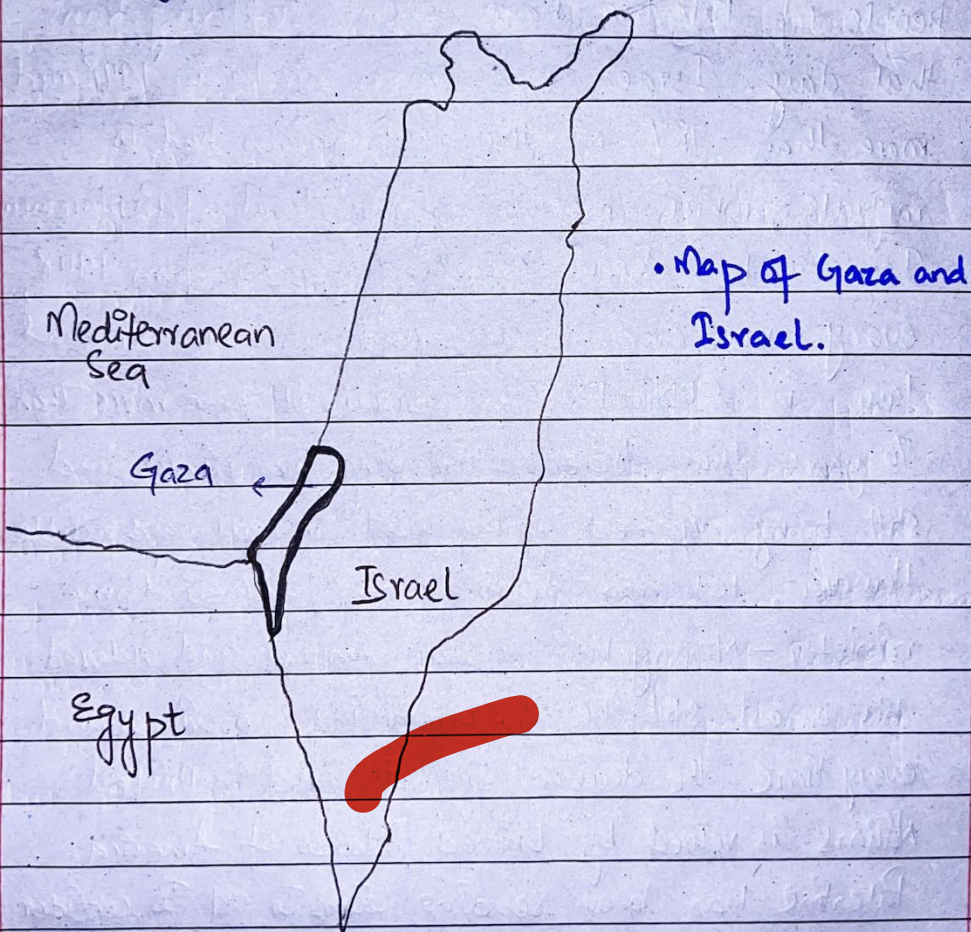 • Map of Gaza and
Israel.
Mediterranean
Sea
Gaza
Israel
Egypt